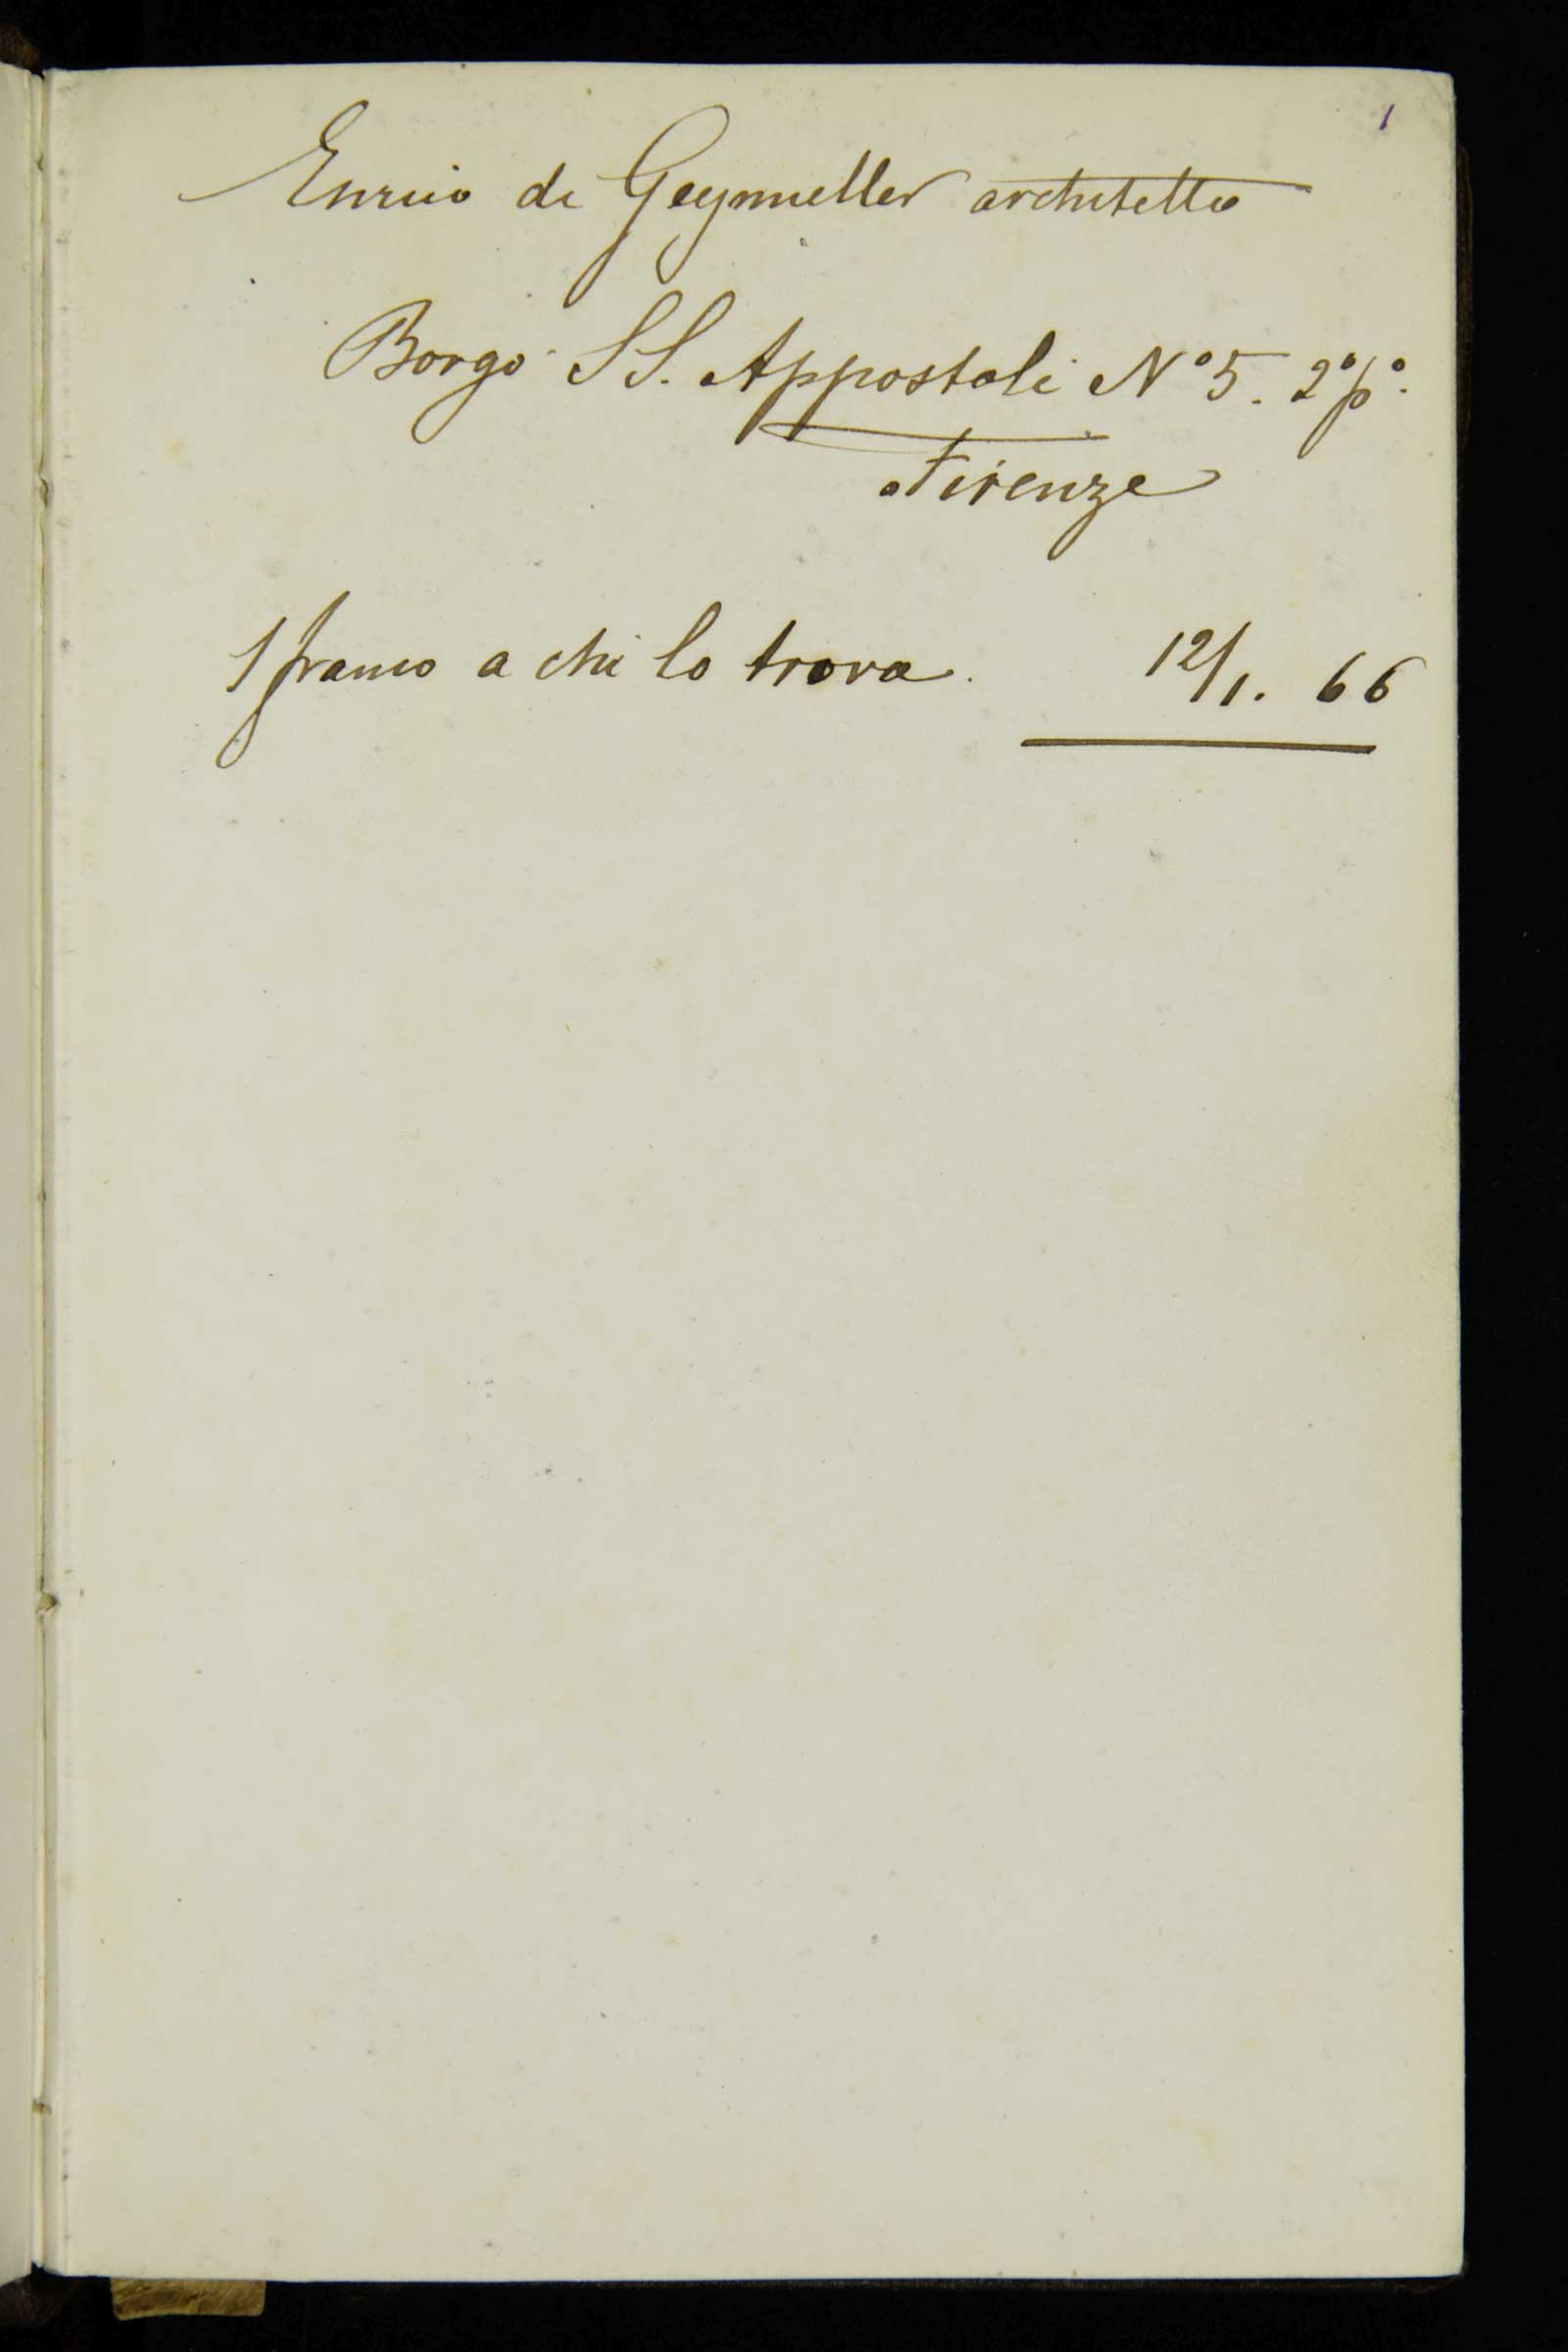 1
Enrico de Geymueller architetto
Borgo SS. Appostoli N° 5. 2° p°.
Firenze
1 franco a chi lo trova. 12/1. 66